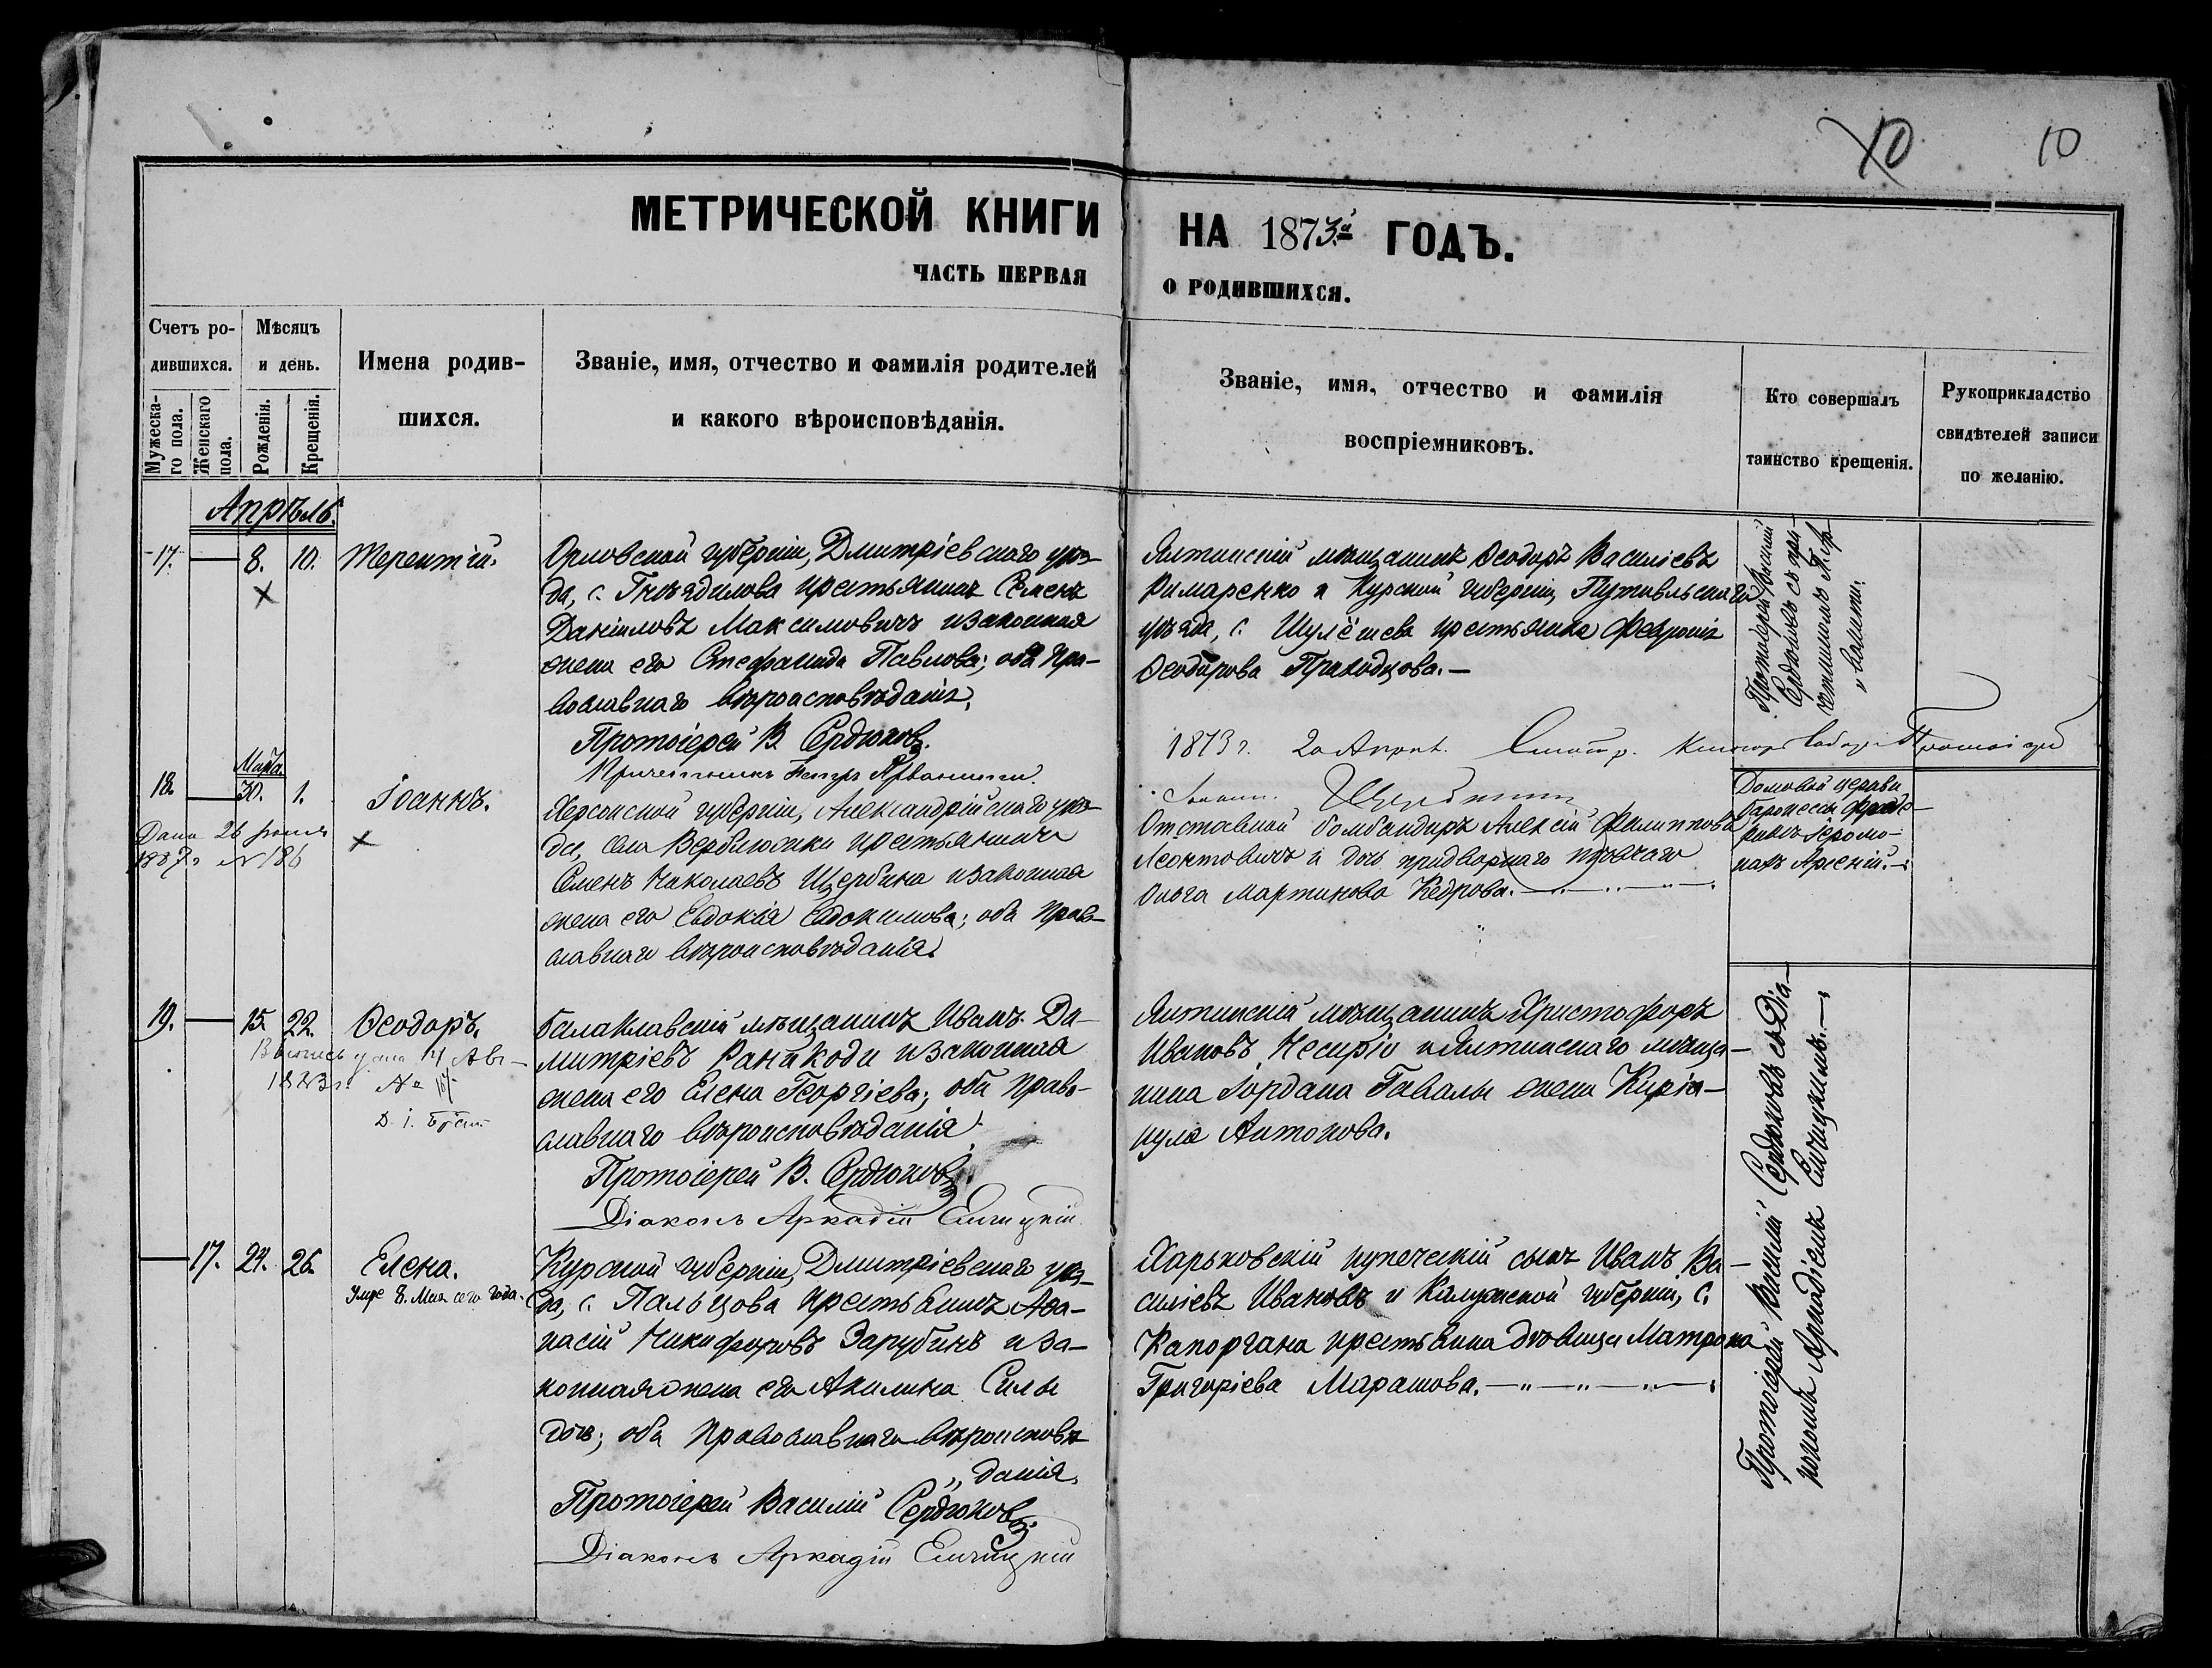 10 10
МЕТРИЧЕСКОЙ КНИГИ НА 1873.й ГОДЪ.
ЧАСТЬ ПЕРВАЯ О РОДИВШИХСЯ.
Счетъ ро-
дившихся.
Мужеска-
го пола.
Женскаго
пола.
Мѣсяцъ
и день.
Рожденія.
Крещенія.
Имена родив-
шихся.
Званіе, имя, отчество и фамилія родителей
и какого вѣроисповѣданія.
Званіе, имя, отчество и фамилія
воспріемниковъ.
Кто совершалъ
таинство крещенія.
Рукоприкладство
свидѣтелей записи
по желанію.
Апрѣль.
17. 8. 10. Терентій.
Орловской губерніи, Дмитріевскаго уѣз-
да, с. Гнѣздилова крестьянинъ Семенъ
Даніиловъ Максимовичъ и законная
жена его Стефанида Павлова; оба пра-
вославнаго вѣроисповѣданія.
Протоіерей В. Сердюковъ.
Причетникъ Петръ
Ялтинскій мѣщанинъ Ѳеодоръ Василіевъ
Римаренко и Курской губерніи, Путивльскаго
уѣзда, с. Шулёшева крестьянка Февронія
Ѳеодорова Приходцова.—
Протоіерей Василій
Сердюковъ съ при-
четникомъ П.
1873 г. 20 Апрѣл.
18. Марта 30. 1. Іоаннъ.
Дана 26 Іюня
1887 г. № 186
Херсонской губерніи, Александрійскаго уѣз-
да, села Вербилюжки крестьянинъ
Семенъ Николаевъ Щербина и законная
жена его Евдокія Евдокимова; оба право-
славнаго вѣроисповѣданія.
Отставной бомбандиръ Алексій Филипповъ
Леонтовичъ и дочь придворнаго пѣвчаго
Ольга Мартинова Кедрова.
Домовой церкви
баронессы Фреде-
риксъ Іеромо-
нахъ Арсеній.
19. 15. 22. Ѳеодоръ.
Балаклавскій мѣщанинъ Иванъ Ди-
митріевъ Ранпкоди и законная
жена его Елена Георгіева; оба право-
славнаго вѣроисповѣданія.
Протоіерей В. Сердюковъ.
Діаконъ Аркадій Ельчицкій
Ялтинскій мѣщанинъ Христофоръ
Ивановъ Чесиріо и Ялтинскаго мѣща-
нина Іордана Гавалы жена Киріа-
кула Антонова.
17. 24. 26. Елена.
Умре 8. Мая сего года.
Курской губерніи, Дмитріевскаго уѣз-
да, с. Пальцова крестьянинъ Аѳа-
насій Никифоровъ Зарубинъ и за-
конная жена его Акилина Силы
дочь; оба православнаго вѣроисповѣ-
„данія.
Протоіерей Василій Сердюковъ.
Діаконъ Аркадій Ельчицкій
Харьковскій купеческій сынъ Иванъ Ва-
силіевъ Ивановъ и Калужской губерніи, с.
Капоргана крестьянка дѣвица Матрона
Григоріева Марашова.
Протоіерей Василій Сердюковъ съ Діа-
кономъ Аркадіемъ Ельчицкимъ.—